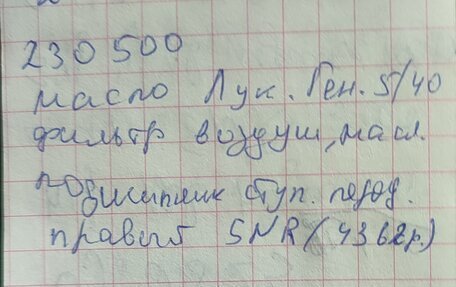 230 500
масло Лук. Ген. 5/40
фильтр воздуш, масл.
подшипник ступ. перед.
правый SNR (4362р.)